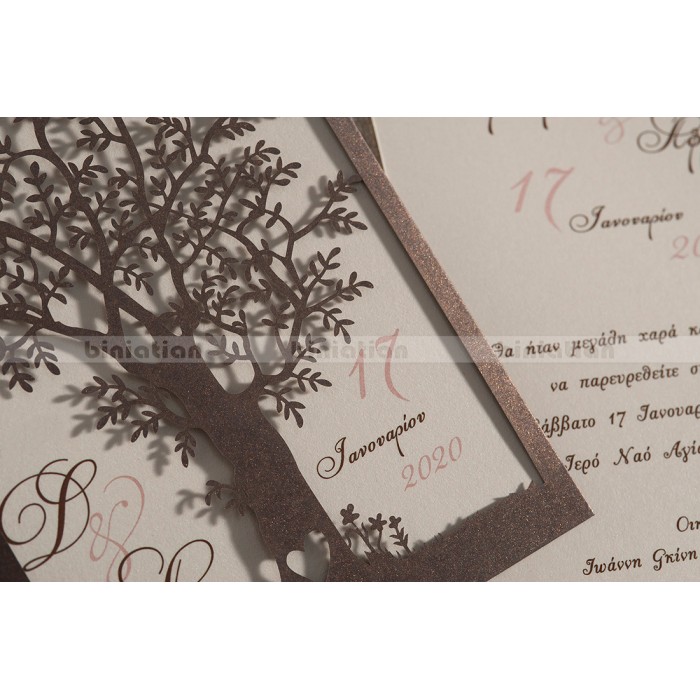 17
Ιανουαρίου
2020
&
17
Ιανουαρίου
20
θα ήταν μεγάλη χαρά
να παρευρεθείτε
Σάββατο 17 Ιανουαρ
Ιερό Ναό Αγία
Οι
Ιωάννη Γκίνη
biniatian biniatian biniatian